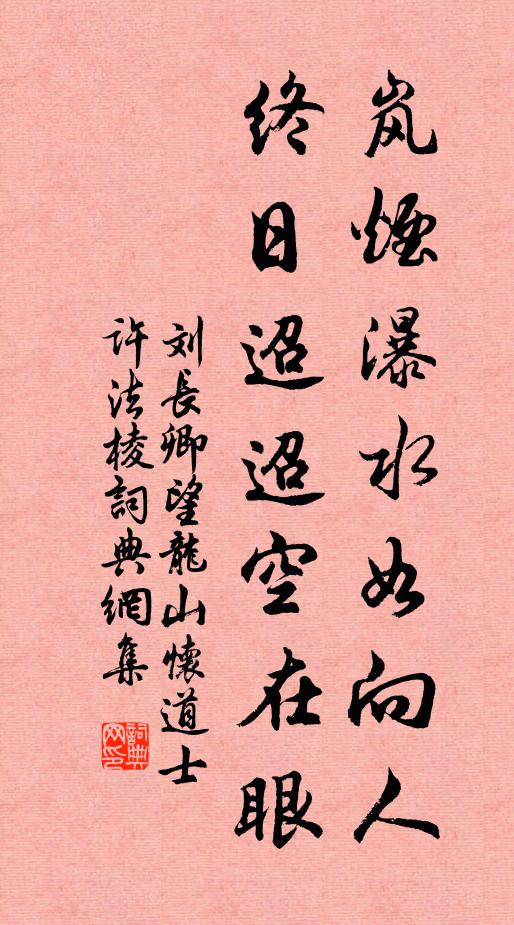 岚烟瀑水如向人
终日迢迢空在眼
刘長卿望龍山懷道士
许法棱詞典網集
詞典网印